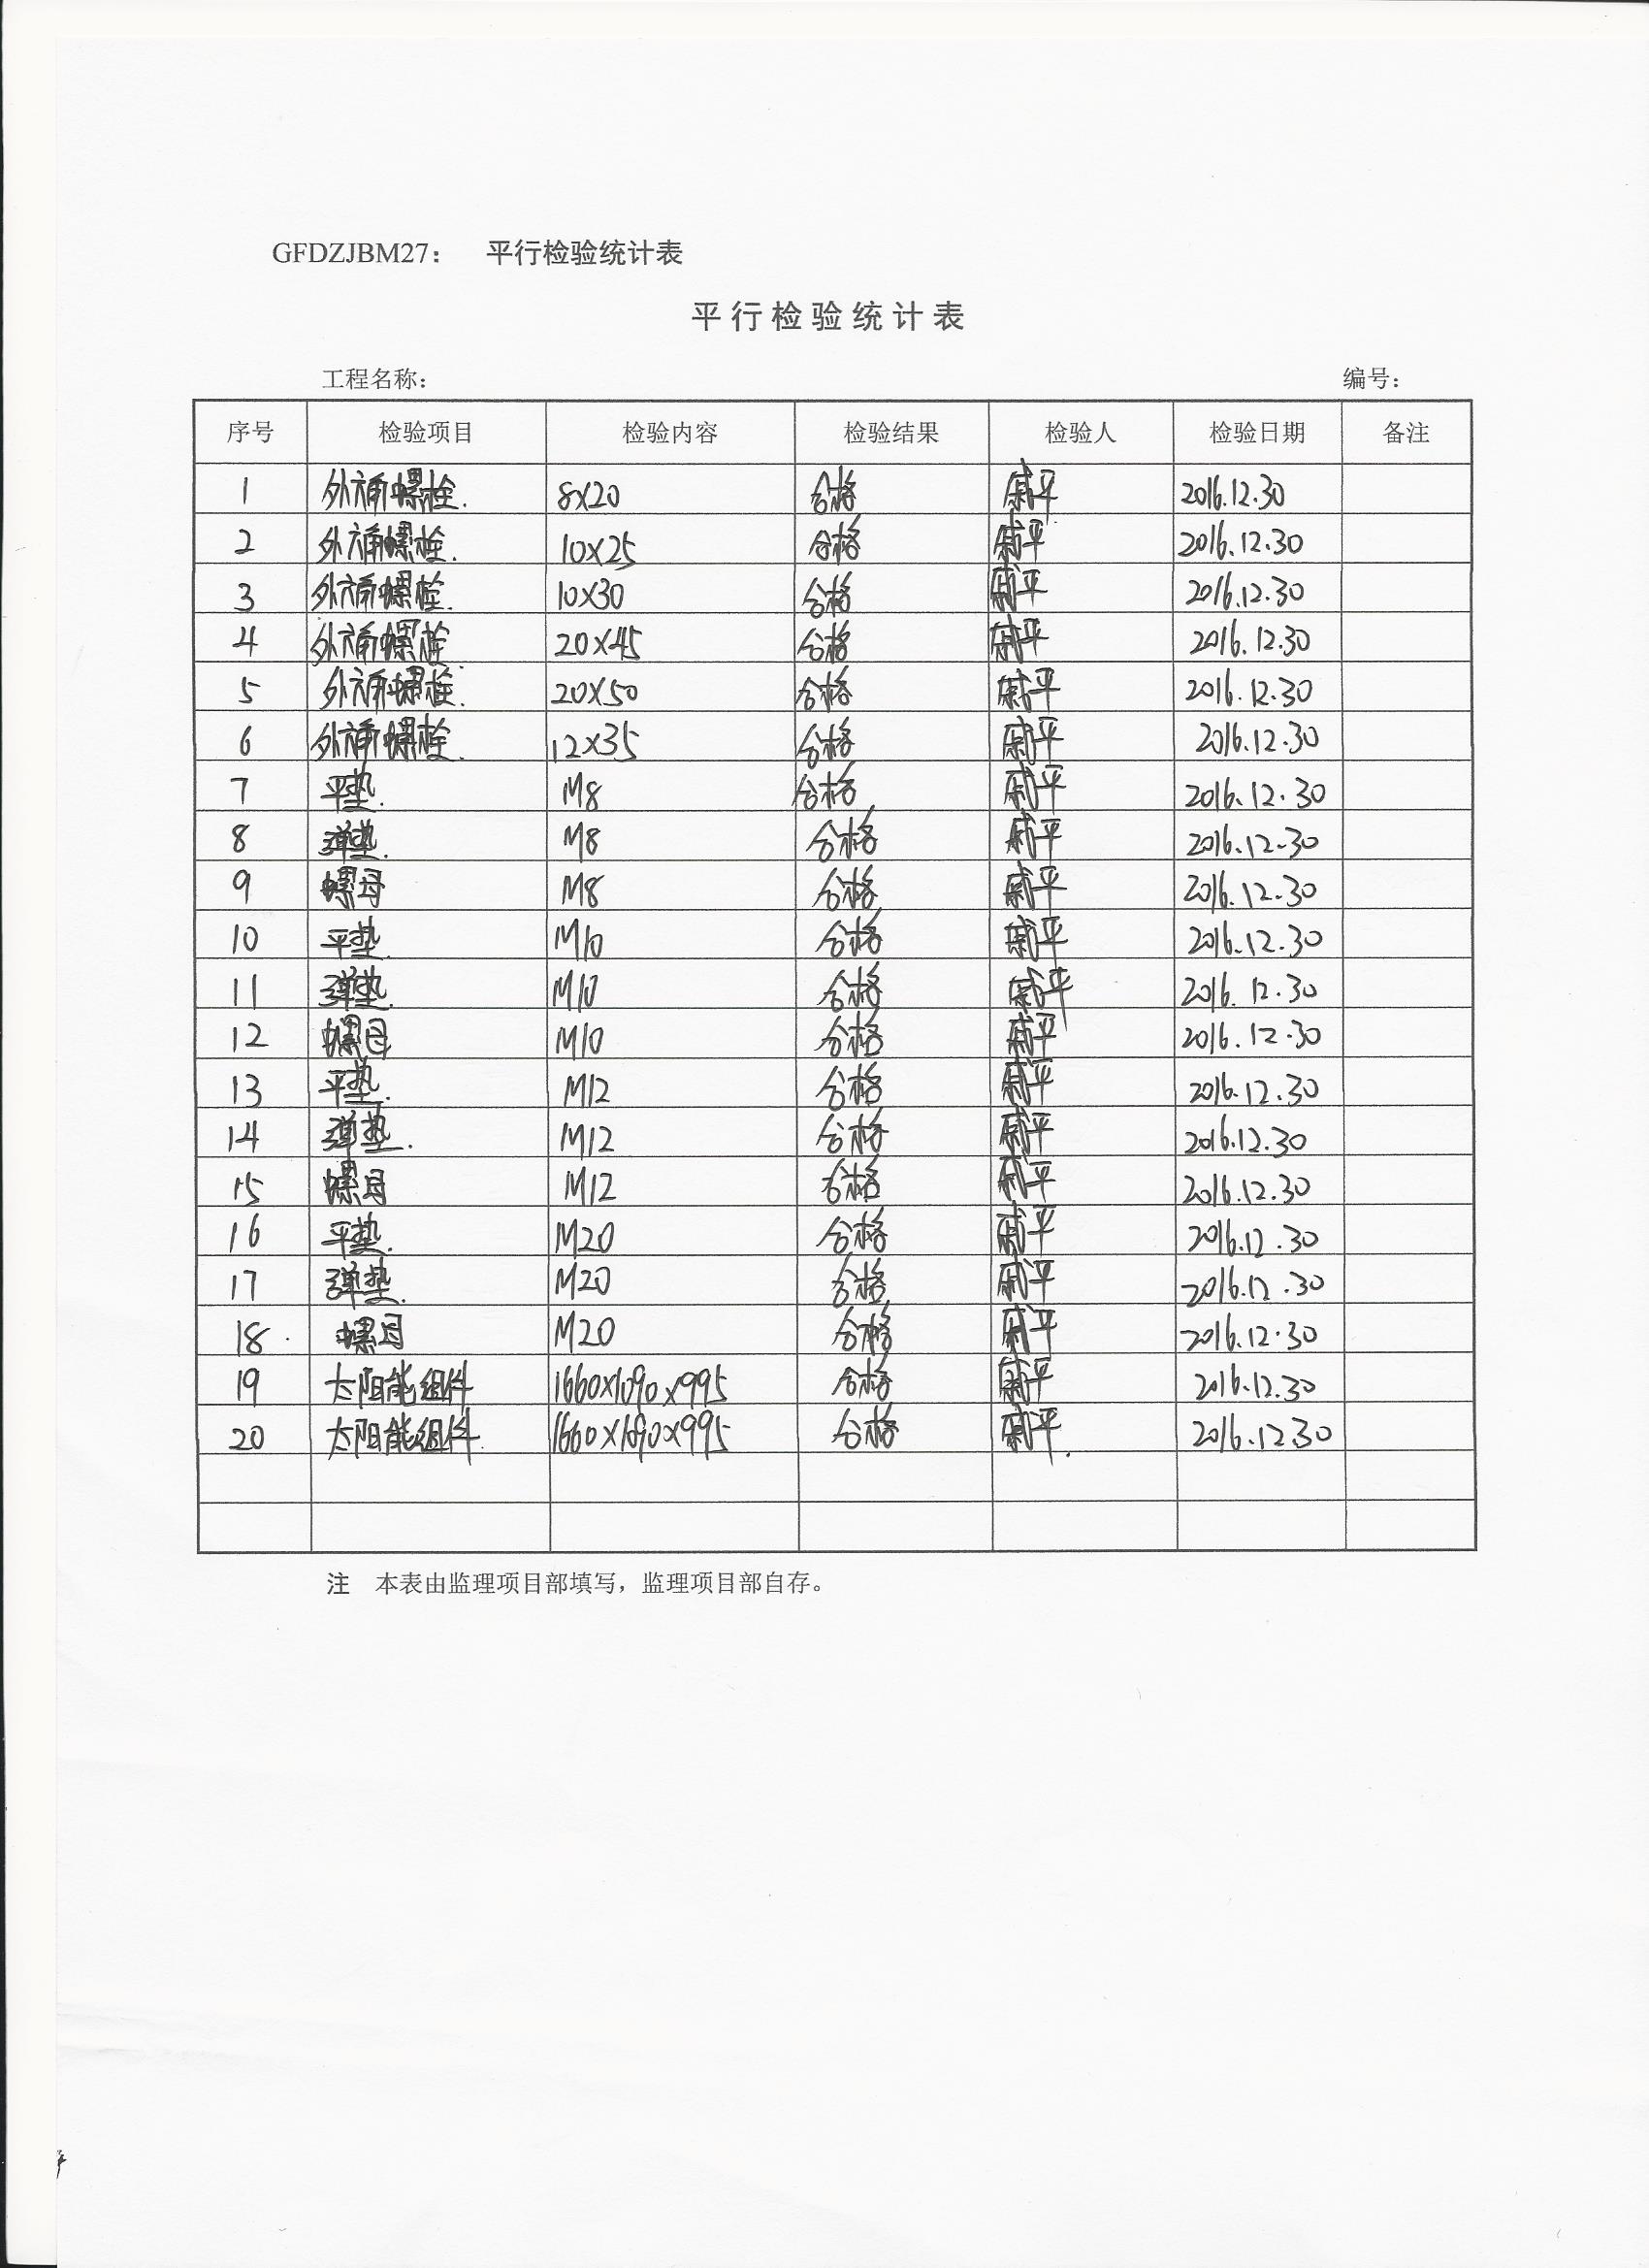 GFDZJBM27: 平行检验统计表
平行检验统计表
工程名称: 编号:
序号 检验项目 检验内容 检验结果 检验人 检验日期 备注
1 外六角螺栓. 8X20 合格 戚平 2016.12.30
2 外六角螺栓. 10X25 合格 戚平 2016.12.30
3 外六角螺栓. 10X30 合格 戚平 2016.12.30
4 外六角螺栓 20X45 合格 戚平 2016.12.30
5 外六角螺栓. 20X50 合格 戚平 2016.12.30
6 外六角螺栓. 12X35 合格 戚平 2016.12.30
7 平垫. M8 合格 戚平 2016.12.30
8 弹垫. M8 合格 戚平 2016.12.30
9 螺母 M8 合格 戚平 2016.12.30
10 平垫. M10 合格 戚平 2016.12.30
11 弹垫. M10 合格 戚平 2016.12.30
12 螺母 M10 合格 戚平 2016.12.30
13 平垫. M12 合格 戚平 2016.12.30
14 弹垫. M12 合格 戚平 2016.12.30
15 螺母 M12 合格 戚平 2016.12.30
16 平垫. M20 合格 戚平 2016.12.30
17 弹垫. M20 合格 戚平 2016.12.30
18. 螺母 M20 合格 戚平 2016.12.30
19 太阳能组件 1660X1090X995 合格 戚平 2016.12.30
20 太阳能组件. 1660X1690X995 合格 戚平. 2016.12.30
注 本表由监理项目部填写，监理项目部自存。